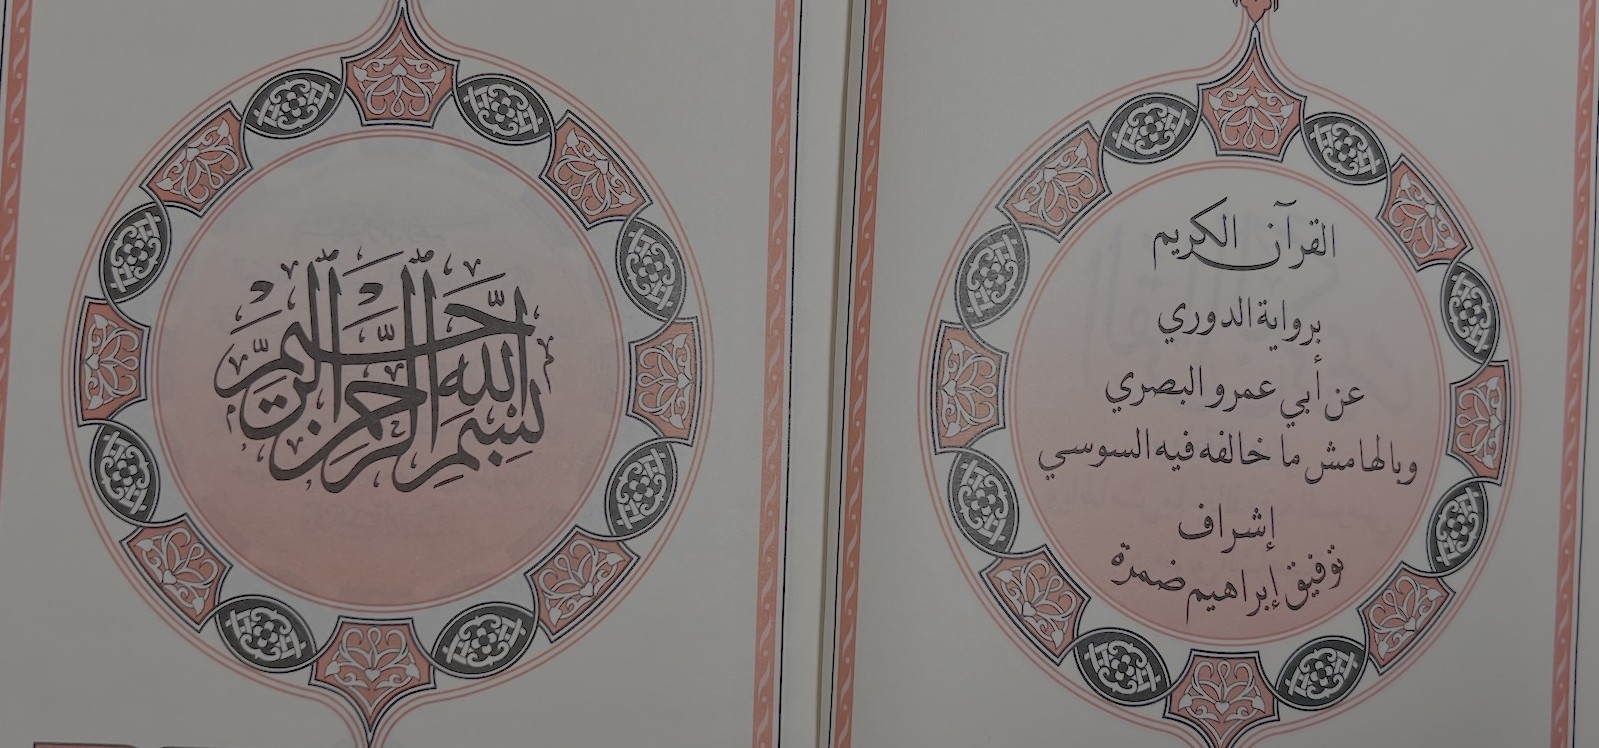 القرآن الكريم
برواية الدوري
عن أبي عمرو البصري
وبالهامش ما خالفه فيه السوسي
إشراف
توفيق إبراهيم ضمرة
بِسْمِ اللهِ الرَّحْمٰنِ الرَّحِيمِ